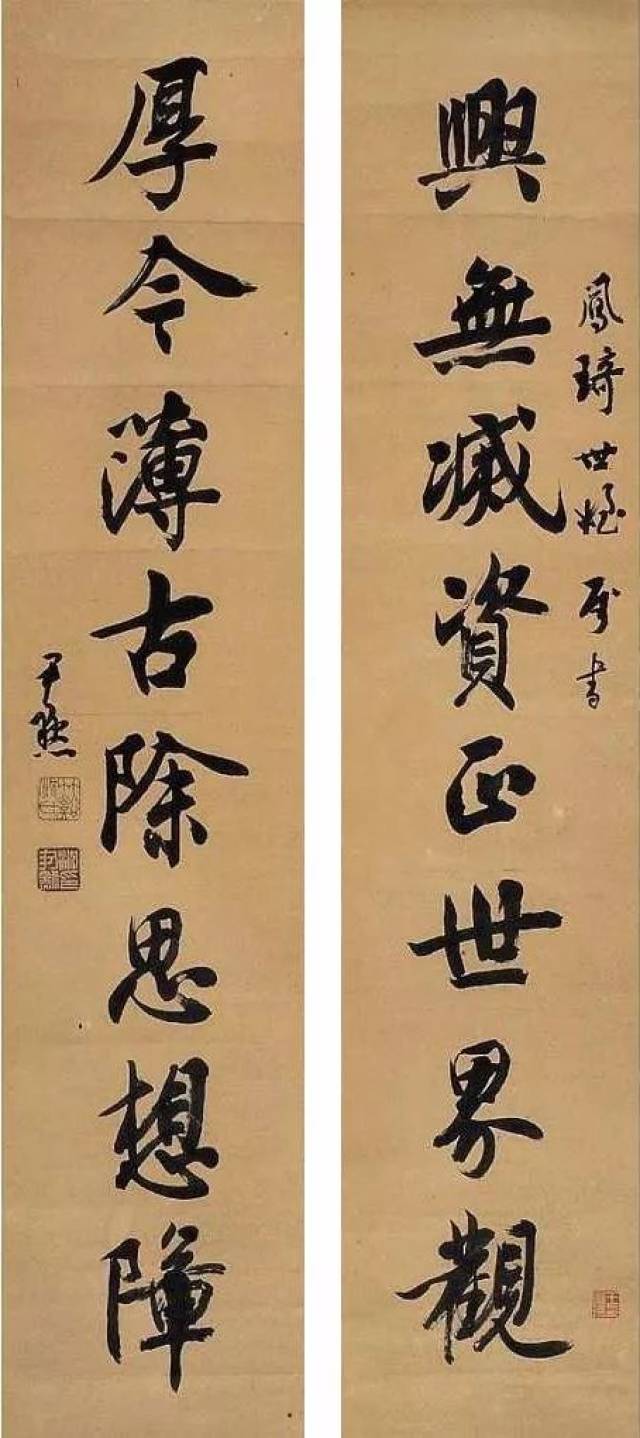 興無滅資正世界觀
鳳琦世屬書
厚今薄古除思想障
尹默